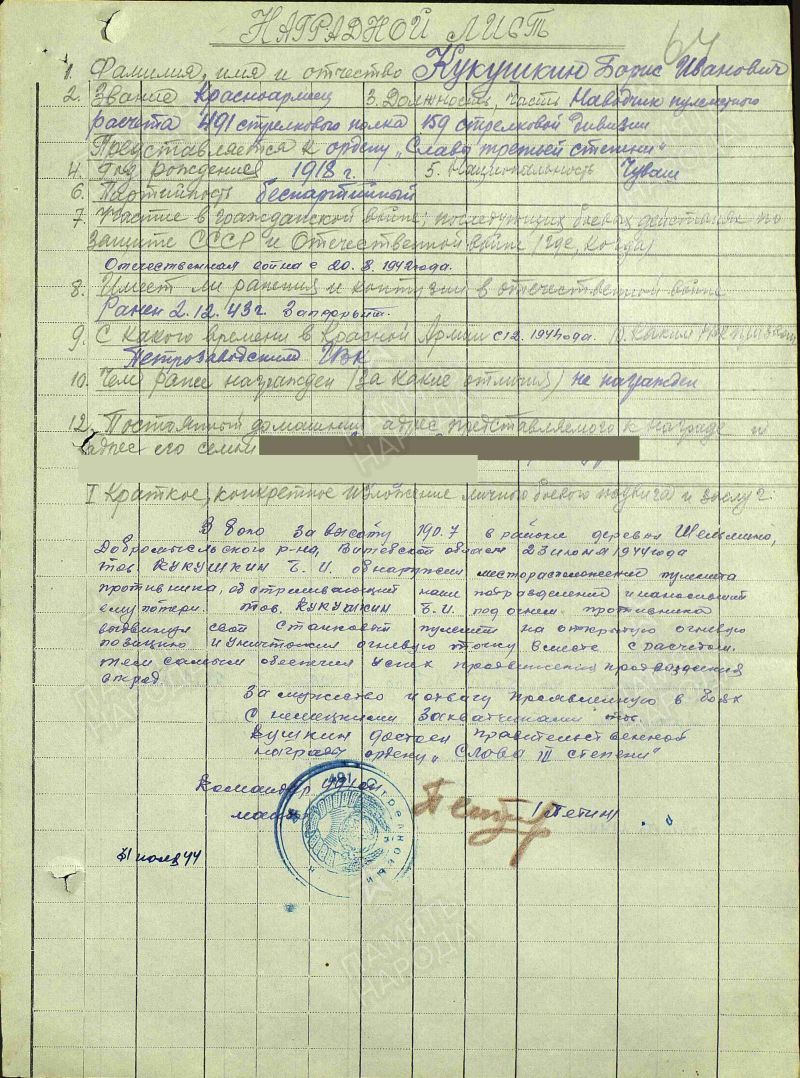 НАГРАДНОЙ ЛИСТ
64
1. Фамилия, имя и отчество Кукушкин Борис Иванович
2. Звание Красноармеец 3. Должность, часть Наводчик пулеметного
расчета 491 стрелкового полка 159 стрелковой Дивизии
Представляется к ордену „Слава третьей степени"
4. Год рождения 1918 г. 5. Национальность Чуваш
6. Партийность беспартийный
7. Участие в гражданской войне, последующих боевых действиях по
защите СССР и Отечественной войне (где, когда)
Отечественная война с 20.8.1942 года.
8. Имеет ли ранения и контузии в отечественной войне
Ранен 2.12.43 г.
9. С какого времени в Красной Армии с 12. 1941 года. 10. Каким РВК призван
Петрозаводским РВК
10. Чем ранее награжден (за какие отличия) не награжден
12. Постоянный домашний адрес представляемого к награде и
адрес его семьи
I Краткое, конкретное изложение личного боевого подвига и заслуг:
В бою за высоту 190.7 в районе деревня Шельмино,
Добромысльского р-на, Витебской области 23 июня 1944 года
тов. КУКУШКИН Б. И. обнаружил месторасположение пулемета
противника, обстреливающий наши подразделения и наносивший
ему потери. тов. КУКУШКИН Б. И. под огнем противника
выдвинул свой станковый пулемет на открытую огневую
позицию и уничтожил огневую точку вместе с расчетом.
тем самым обеспечил успех продвижения подразделения
вперед.
За мужество и отвагу проявленную в боях
с немецкими захватчиками тов.
Кушкин достоен правительственной
награды ордену „Слова III степени"
Командир 491 сп
майор /Петин/
491 Стрелковый
1 июля 44
ПАМЯТЬ НАРОДА